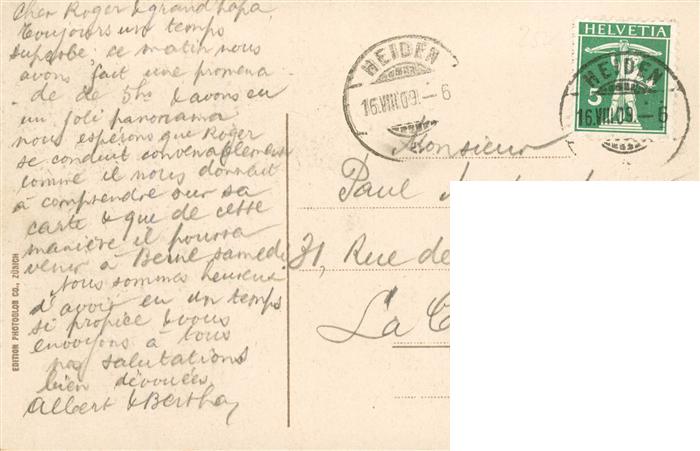 Cher Roger & grand papa,
toujours un temps
superbe ce matin nous
avons fait une promena
de de 5hs & avons eu
un joli panorama
nous espérons que Roger
se conduit convenablement
comme il nous donnait
à comprendre sur sa
carte & que de cette
manière il pourra
venir à Berne samedi.
Nous sommes heureux
d'avoir eu un temps
si propice & vous
envoyons à tous
nos salutations
bien dévouées
Albert & Bertha
EDITION PHOTOGLOB CO., ZÜRICH
HEIDEN
16.VIII.09.-6
HELVETIA
5
HEIDEN
16.VIII.09.-6
Monsieur
Paul
31, Rue de
La C